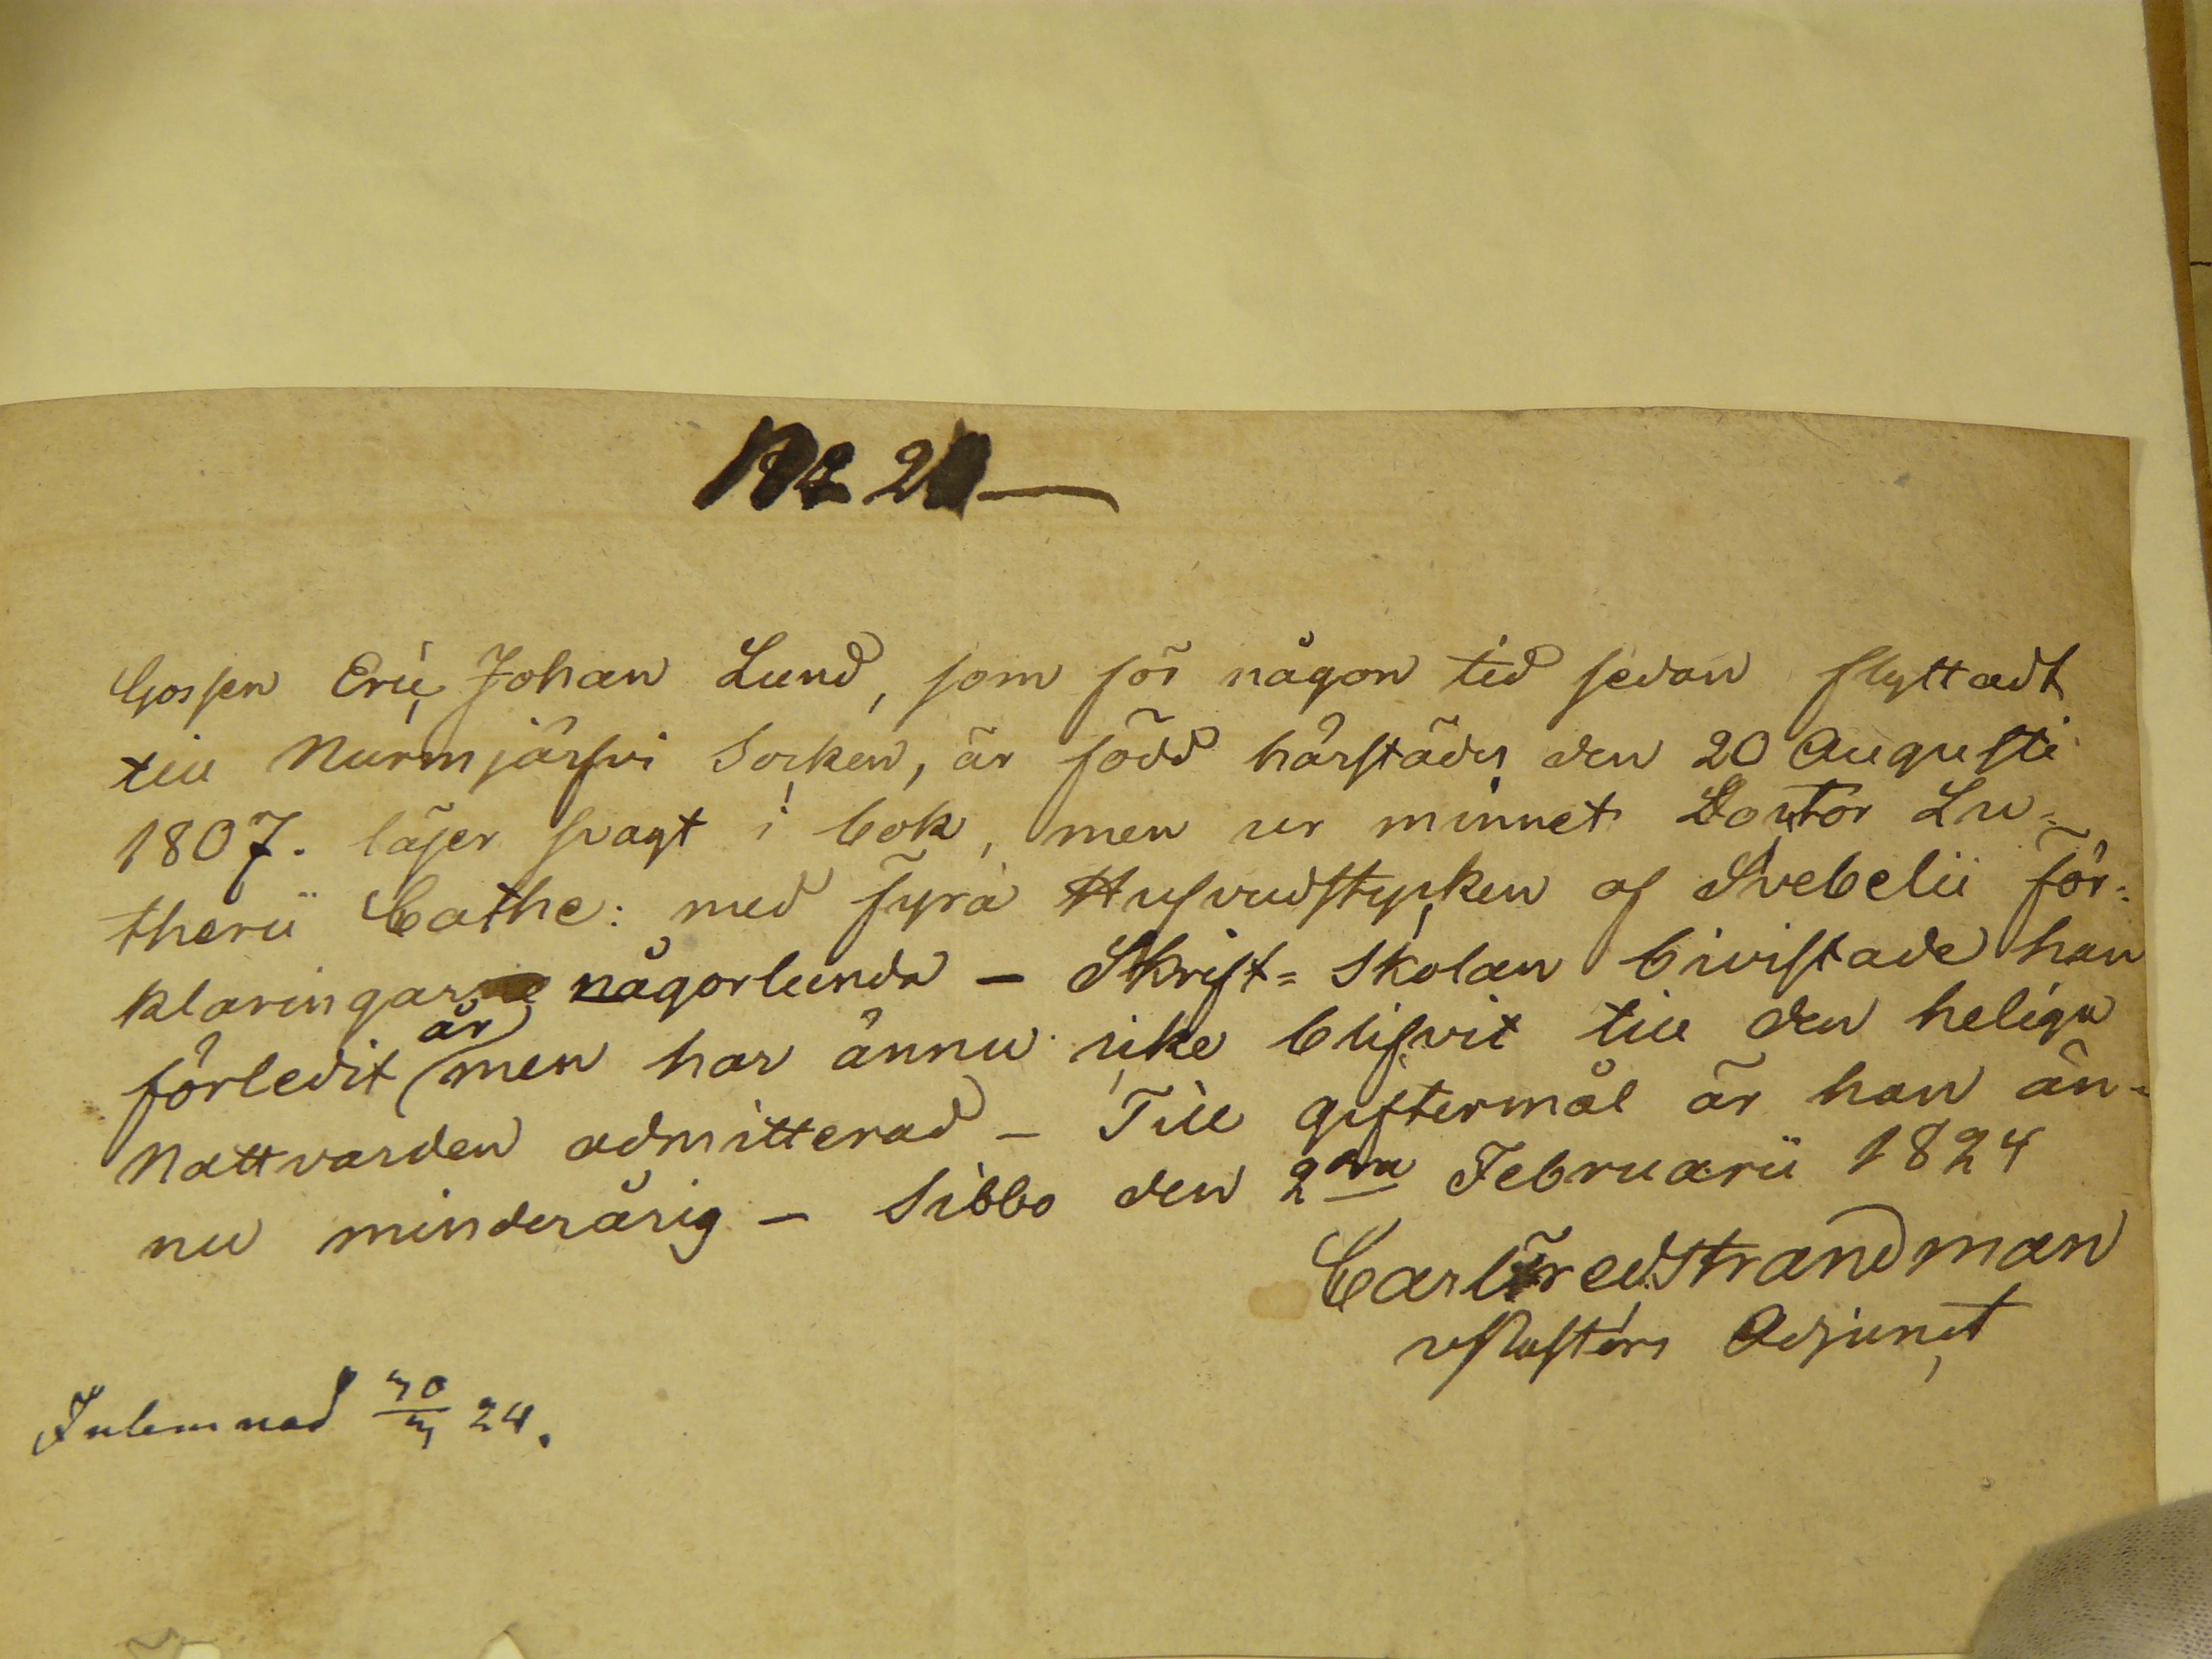 Gossen Eric Johan Lund, som för någon tid sedan flyttadt
till Nurmjärfvi Socken, är född härstädes den 20 Augusti
1807. läser svagt i bok, men ur minnet Doctor Lu-
therii Cathe: med fyra Hufvudstycken af Svebelii för-
klaringar någorlunda – Skrift- Skolan bivistade han
förledit år men har ännu icke blifvit till den heliga
Nattvarden admitterad – Till giftermål är han än-
nu minderårig – Sibbo den 2dra Februarii 1824
Carl Fred Strandman
v Pastors Adjunct
Inlemnad 24.